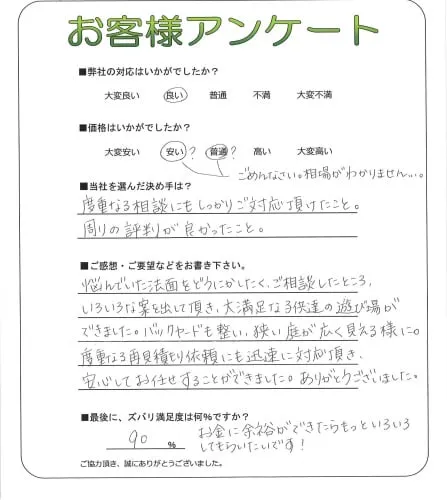 お客様アンケート
■弊社の対応はいかがでしたか？
大変良い 良い 普通 不満 大変不満
■価格はいかがでしたか？
大変安い 安い? 普通? 高い 大変高い
ごめんなさい。相場がわかりません…。
■当社を選んだ決め手は？
度重なる相談にもしっかりご対応頂けたこと。
周りの評判が良かったこと。
■ご感想・ご要望などをお書き下さい。
悩んでいた法面をどうにかしたく、ご相談したところ、
いろいろな案を出して頂き、大満足な子供達の遊び場が
できました。バックヤードも整い、狭い庭が広く見える様に。
度重なる再見積もり依頼にも迅速に対応頂き、
安心してお任せすることができました。ありがとうございました。
■最後に、ズバリ満足度は何％ですか？
90 ％ お金に余裕ができたらもっといろいろ
してもらいたいです！
ご協力頂き、誠にありがとうございました。